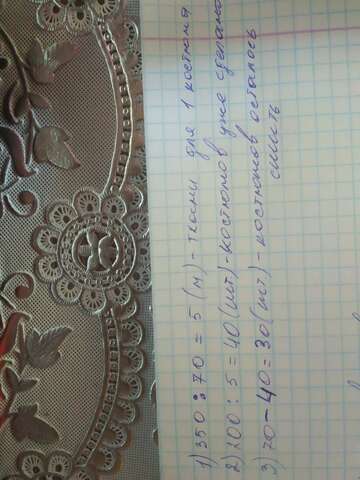 1) 350 : 70 = 5 (м) - ткани для 1 костюма
2) 200 : 5 = 40 (шт) - костюмов уже сделано
3) 70 - 40 = 30 (шт) - костюмов осталось
сшить